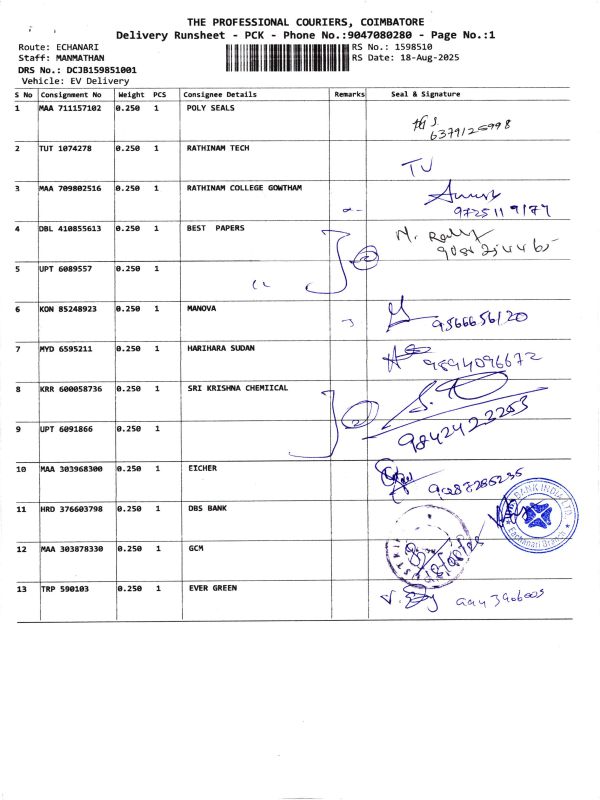 THE PROFESSIONAL COURIERS, COIMBATORE
Delivery Runsheet - PCK - Phone No.:9047080280 - Page No.:1
Route: ECHANARI RS No.: 1598510
Staff: MANMATHAN RS Date: 18-Aug-2025
DRS No.: DCJB159851001
Vehicle: EV Delivery
S No Consignment No Weight PCS Consignee Details Remarks Seal & Signature
1 MAA 711157102 0.250 1 POLY SEALS
2 TUT 1074278 0.250 1 RATHINAM TECH TU
3 MAA 709802516 0.250 1 RATHINAM COLLEGE GOWTHAM
4 DBL 410855613 0.250 1 BEST PAPERS
5 UPT 6089557 0.250 1
6 KON 85248923 0.250 1 MANOVA 9566656120
7 MYD 6595211 0.250 1 HARIHARA SUDAN 9894096672
8 KRR 600058736 0.250 1 SRI KRISHNA CHEMIICAL
9842423253
9 UPT 6091866 0.250 1
10 MAA 303968300 0.250 1 EICHER
11 HRD 376603798 0.250 1 DBS BANK
BANK INDIA LTD.
Eachanari Branch
12 MAA 303878330 0.250 1 GCM
13 TRP 590103 0.250 1 EVER GREEN